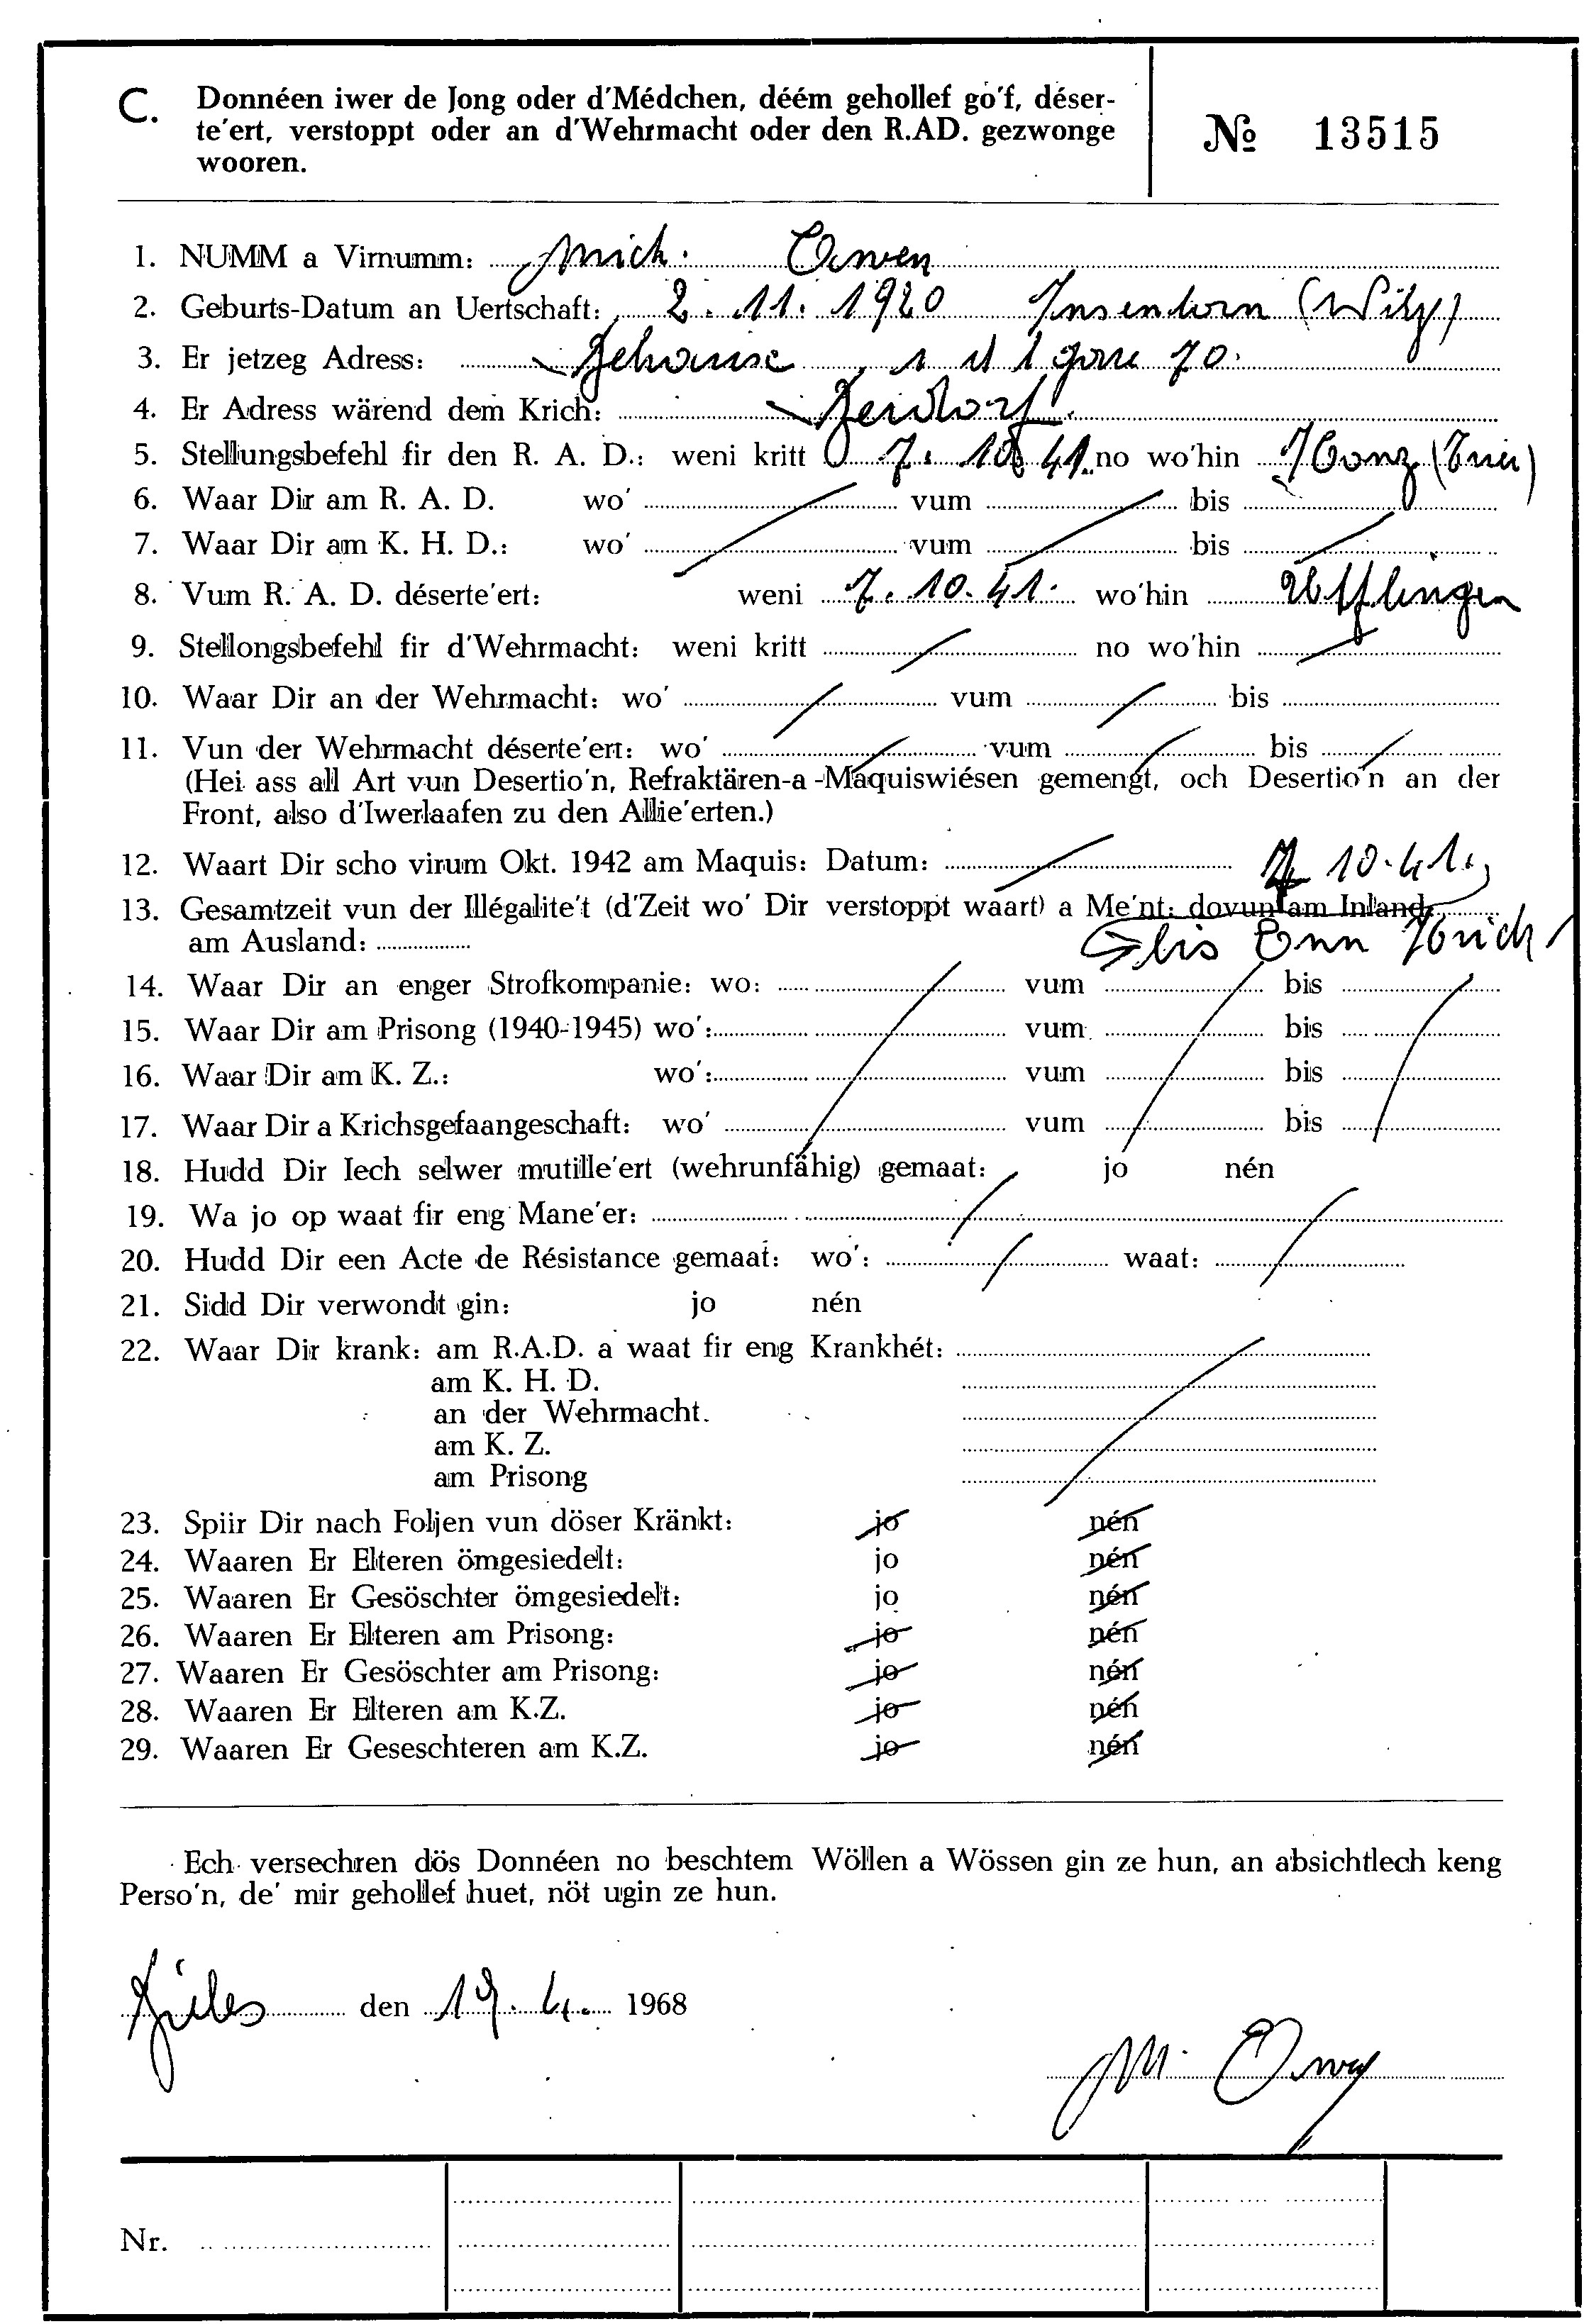 C. Donnéen iwer de Jong oder d'Médchen, déém gehollef go'f, déser-
te'ert, verstoppt oder an d'Wehrmacht oder den R.AD. gezwonge
wooren.
№ 13515
1. NUMM a Virnumm: Mich.
2. Geburts-Datum an Uertschaft: 2. 11. 1920 Insenborn (Wiltz)
3. Er jetzeg Adress: 70.
4. Er Adress wärend dem Krich:
5. Stellungsbefehl fir den R. A. D.: weni kritt 7. 10 41. no wo'hin Konz (Trier)
6. Waar Dir am R. A. D. wo' vum bis
7. Waar Dir am K. H. D.: wo' vum bis
8. Vum R. A. D. déserte'ert: weni 7. 10. 41. wo'hin Ulflingen
9. Stellongsbefehl fir d'Wehrmacht: weni kritt no wo'hin
10. Waar Dir an der Wehrmacht: wo' vum bis
11. Vun der Wehrmacht déserte'ert: wo' vum bis
(Hei ass all Art vun Desertio'n, Refraktären-a-Maquiswiésen gemengt, och Desertio'n an der
Front, also d'Iwerlaafen zu den Allie'erten.)
12. Waart Dir scho virum Okt. 1942 am Maquis: Datum: 7. 10. 41.
13. Gesamtzeit vun der Illégalite't (d'Zeit wo' Dir verstoppt waart) a Me'nt: dovun am Inland:
am Ausland: bis Enn Krich
14. Waar Dir an enger Strofkompanie: wo: vum bis
15. Waar Dir am Prisong (1940-1945) wo': vum bis
16. Waar Dir am K. Z.: wo': vum bis
17. Waar Dir a Krichsgefaangeschaft: wo' vum bis
18. Hudd Dir Iech selwer mutille'ert (wehrunfähig) gemaat: jo nén
19. Wa jo op waat fir eng Mane'er:
20. Hudd Dir een Acte de Résistance gemaat: wo': waat:
21. Sidd Dir verwondt gin: jo nén
22. Waar Dir krank: am R.A.D. a waat fir eng Krankhét:
am K. H. D.
an der Wehrmacht.
am K. Z.
am Prisong
23. Spiir Dir nach Foljen vun döser Kränkt: jo nén
24. Waaren Er Elteren ömgesiedelt: jo nén
25. Waaren Er Gesöschter ömgesiedelt: jo nén
26. Waaren Er Elteren am Prisong: jo nén
27. Waaren Er Gesöschter am Prisong: jo nén
28. Waaren Er Elteren am K.Z. jo nén
29. Waaren Er Geseschteren am K.Z. jo nén
Ech versechren dös Donnéen no beschtem Wöllen a Wössen gin ze hun, an absichtlech keng
Perso'n, de' mir gehollef huet, nöt ugin ze hun.
den 19. 4. 1968
M.
Nr.